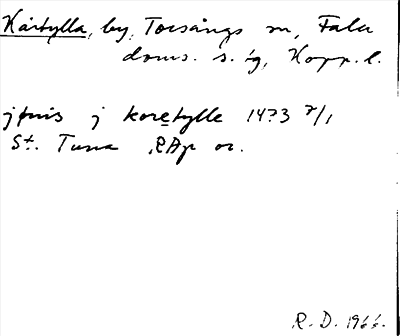 Kårtylla, by, Torsångs sn, Falu
doms. s:ig, Kopp. l.
jþnis j koretylle 1473 7/1
St. Tuna RAp or.
R. D. 1966.